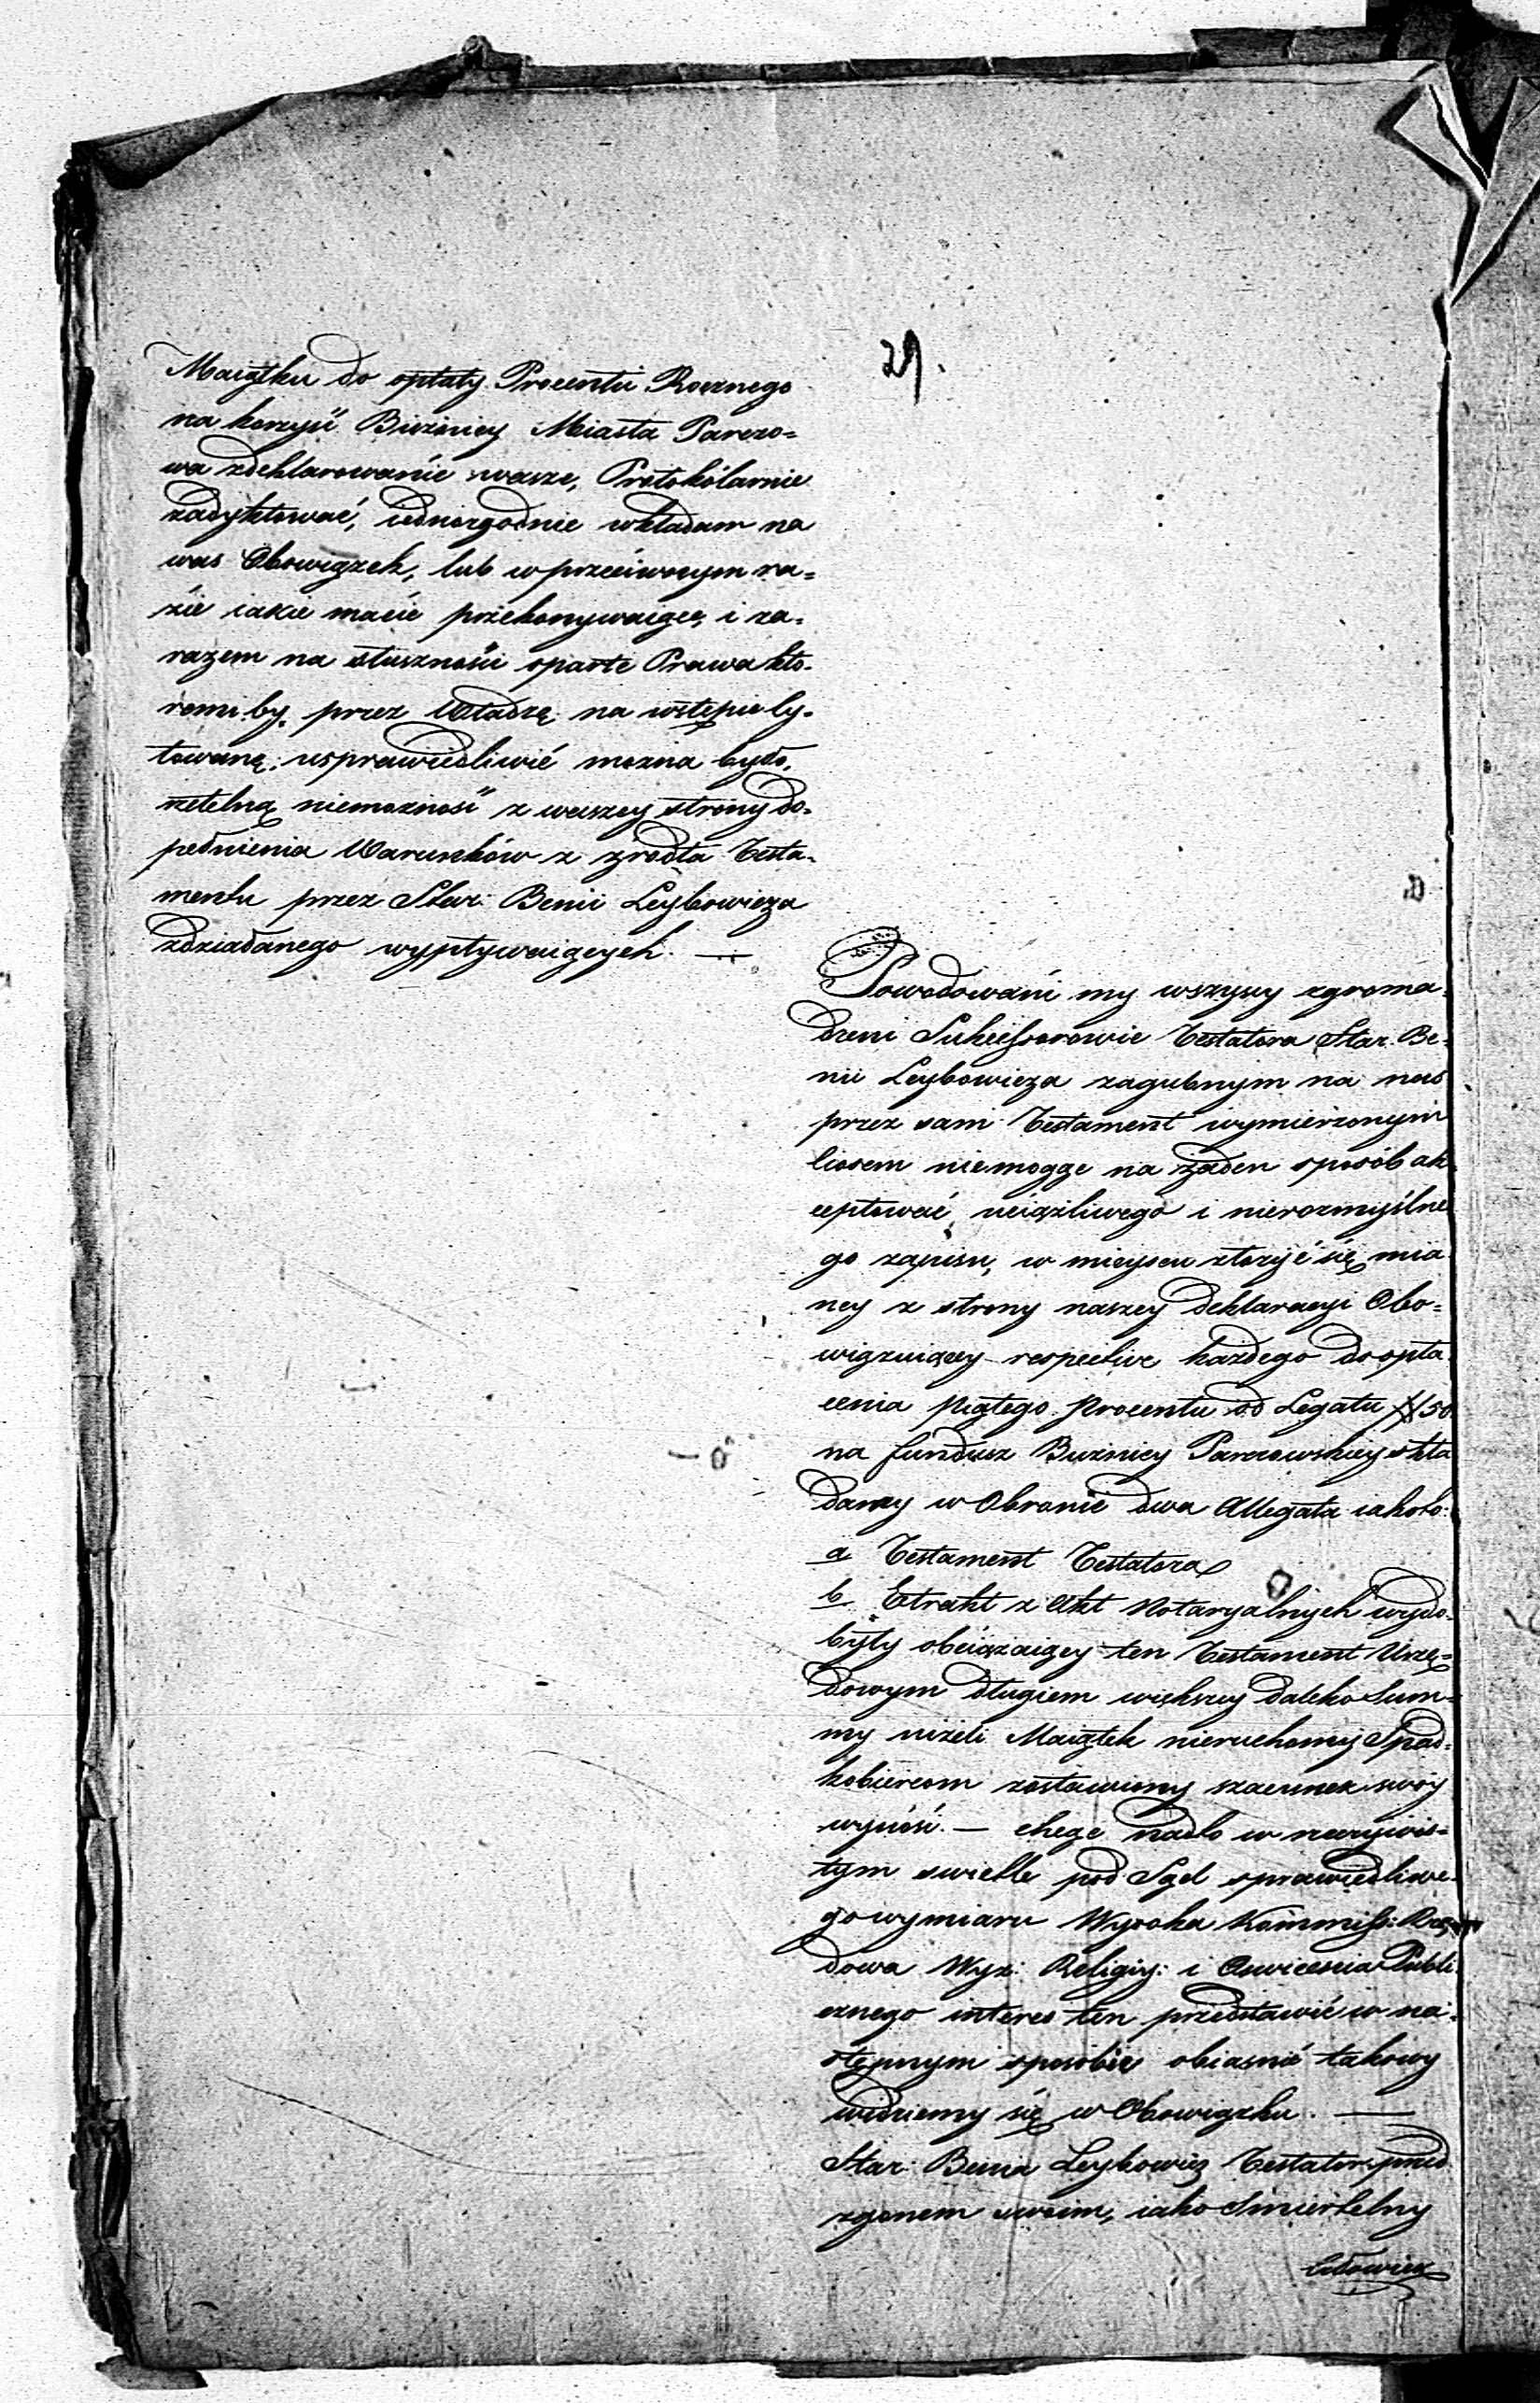 29.
Maiątku do opłaty Procentu Rocznego
na korzyść Bużnicy Miasta Parczo=
wa zdeklarowanie wasze, Protokólarnie
zadyktować, iednozgodnie wkładam na
was Obowiązek, lub w przeciwnym ra=
zie iakie macie przekonywaiące, i za=
razem na słuszności oparte Prawa któ=
remi by, przez Władzę na wstępie cy=
towaną, usprawiedliwić można było,
rzetelną niemożność z waszey strony do=
pełnienia Warunków z zrodła Testa=
mentu przez Star: Benii Leybowicza
zdziałanego wypływaiących. —
Powodowani my wszyscy zgroma=
dzeni Sukcessorowie Testatora Star. Be=
nii Leybowicza zagubnym na nas
przez sam Testament wymierzonym
ciosem niemogąc na żaden sposób ak=
ceptować uciążliwego i nierozmyślne
go zapisu, w mieyscu złożyć się mia
ney z strony naszey deklaracyi Obo=
wiązuiącey respective każdego do opła
cenia piątego Procentu od Legatu # 50
na fundusz Bużnicy Parczowskiey skła
damy w Obronie dwa Allegata iakoto:
a Testament Testatora
b Extrakt z Akt Notaryalnych wydo=
byty obciążaiący ten Testament Urzę=
dowym długiem większey daleko Sum=
my niżeli Maiątek nieruchomy Spad=
kobiercom zostawiony szacunek swóy
wynósi. — chcąc nadto w rzeczywis=
tym swietle pod Sąd sprawiedliwe=
go wymiaru Wysoka Kommiss: Rzą=
dowa Wyz: Religiy: i Oswiecenia Publi
cznego interes ten przedstawić w na=
stępnym sposobie obiasnić takowy
widziemy się w Obowiązku. —
Star: Benia Leybowicz Testator przed
zgonem swoim, iako Smiertelny
Człowiek